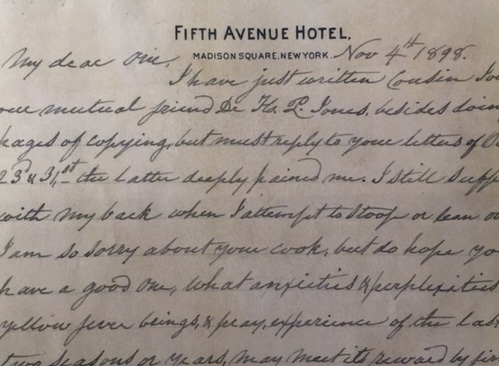 FIFTH AVENUE HOTEL,
MADISON SQUARE, NEW YORK. Nov 4th 1898.
My dear one,
I have just written Cousin
our mutual friend De K. P. Jones, besides doing
pages of copying, but must reply to your letters of
23d & 31st the latter deeply pained me. I still
with my back when I attempt to stoop or lean
I am so sorry about your cook, but do hope
have a good one, what anxieties & perplexities
yellow fever beings, & pray, experience of the
two seasons or years, may meet its reward by